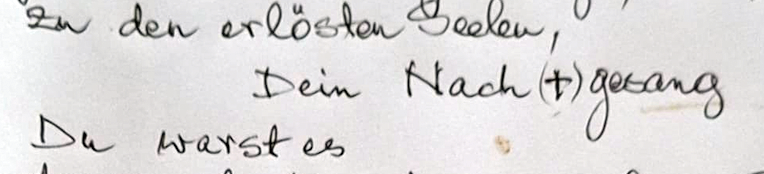 zu den erlösten Seelen,
Dein Nach(t)gesang
Du warst es